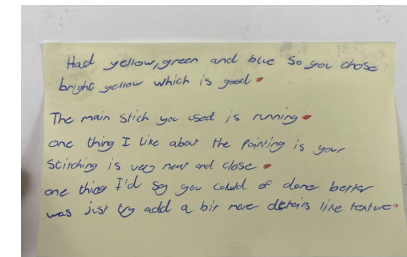 Had yellow, green and blue So you chose
bright yellow which is good.
The main stich you used is running.
one thing I like about the painting is your
Stitching is very neat and close.
one thing I'd say you could of done better
was just try add a bit more details like texture.